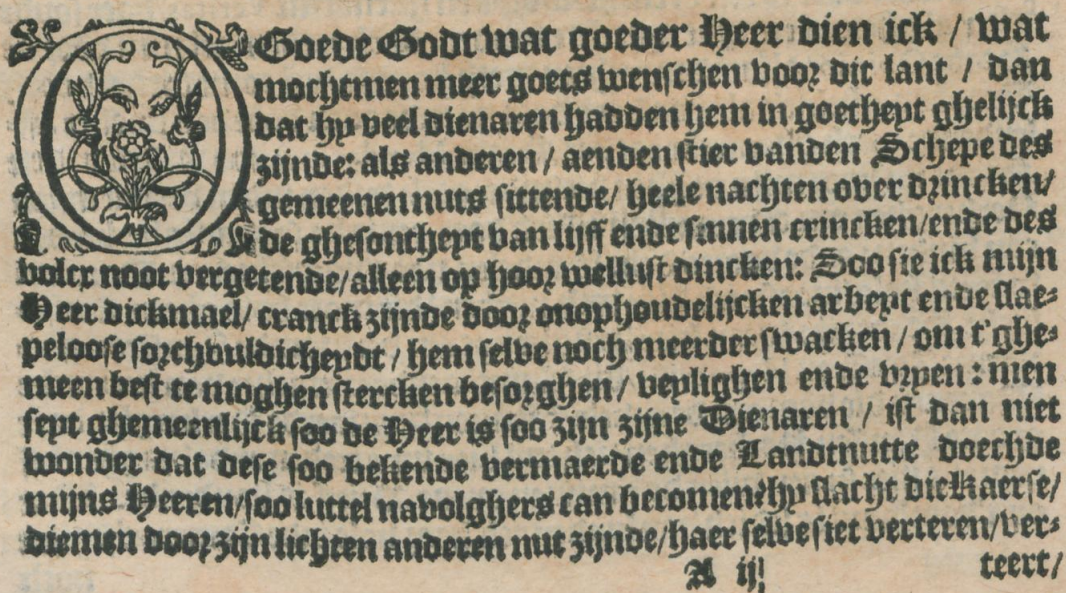 O Goede Godt wat goeder Heer dien ick / wat
mochtmen meer goets wenschen voor dit lant / dan
dat hy veel dienaren hadden hem in goetheyt ghelijck
zijnde: als anderen / aenden stier vanden Schepe des
gemeenen nuts sittende / heele nachten over drincken /
de ghesontheyt van lijff ende sinnen crincken / ende des
volcx noot vergetende / alleen op hoor wellust dincken: Soo sie ick mijn
Heer dickmael / cranck zijnde door onophoudelijcken arbeyt ende slae-
peloose sorchvuldicheydt / hem selve noch meerder swacken / om t'ghe-
meen best te moghen stercken besorghen / veylighen ende vryen: men
seyt ghemeenlijck soo de Heer is soo zijn zijne Dienaren / ist dan niet
wonder dat dese soo bekende vermaerde ende Landtnutte doechde
mijns Heeren / soo luttel navolghers can becomen? hy slacht die Kaerse /
diemen door zijn lichten anderen nut zijnde / haer selve siet verteren / ver-
A ij teert /